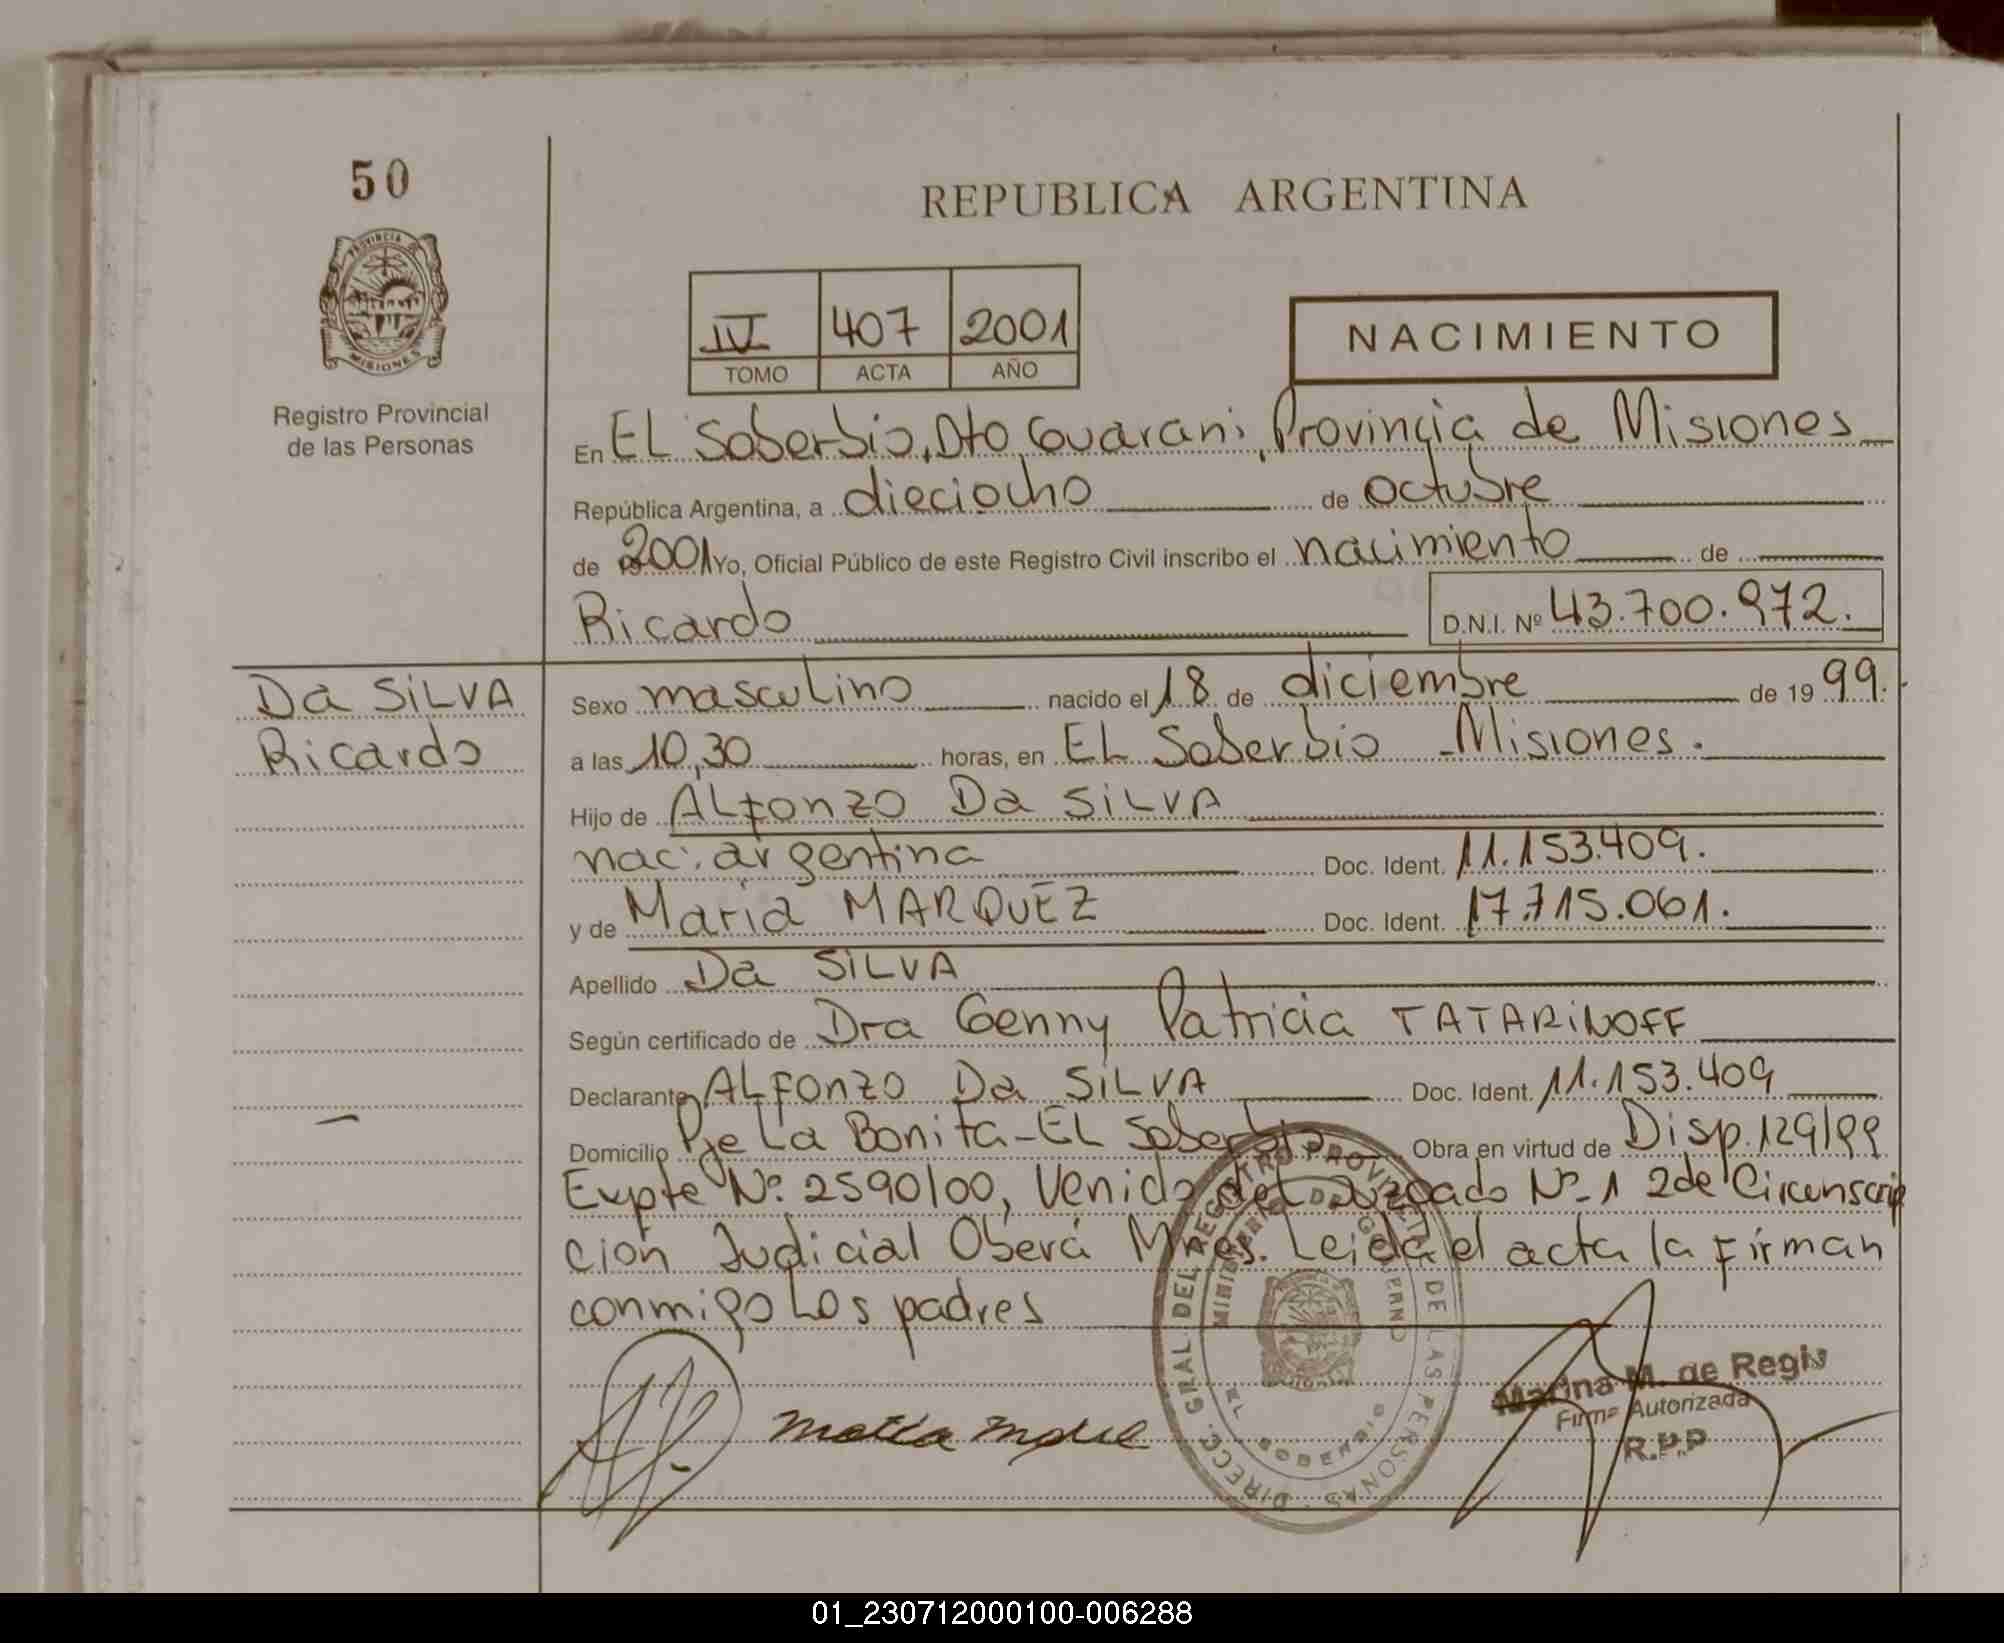 50
REPUBLICA ARGENTINA
PROVINCIA DE
MISIONES
Registro Provincial
de las Personas
IV 407 2001
TOMO ACTA AÑO
NACIMIENTO
En EL Soberbio, Dto Guarani, Provincia de Misiones
República Argentina, a dieciocho de octubre
de 2001 Yo, Oficial Público de este Registro Civil inscribo el nacimiento de
Ricardo D.N.I. Nº 43.700.972.
Da SiLVA
Ricardo
Sexo masculino nacido el 18 de diciembre de 19 99.
a las 10,30 horas, en EL Soberbio - Misiones.
Hijo de ALfonzo Da SiLVA
nac. argentina Doc. Ident. 11.153.409.
y de Maria MARQUEZ Doc. Ident. 17.715.061.
Apellido Da SiLVA
Según certificado de Dra Genny Patricia TATARiNOFF
Declarante ALFonzo Da SiLVA Doc. Ident. 11.153.409
Domicilio Pje La Bonita - EL Soberbio Obra en virtud de Disp. 129/99
Expte Nº 2590/00, Venido del Juzgado Nº 1 2de Circunscrip
ción Judicial Oberá Mnes. Leida el acta la firman
conmigo Los padres
DIRECC. GRAL. DEL REGISTRO PROVINCIAL DE LAS PERSONAS
MINISTERIO DE GOBIERNO
EL SOBERBIO
Marina M. de Regis
Firma Autorizada
R.P.P
01_230712000100-006288